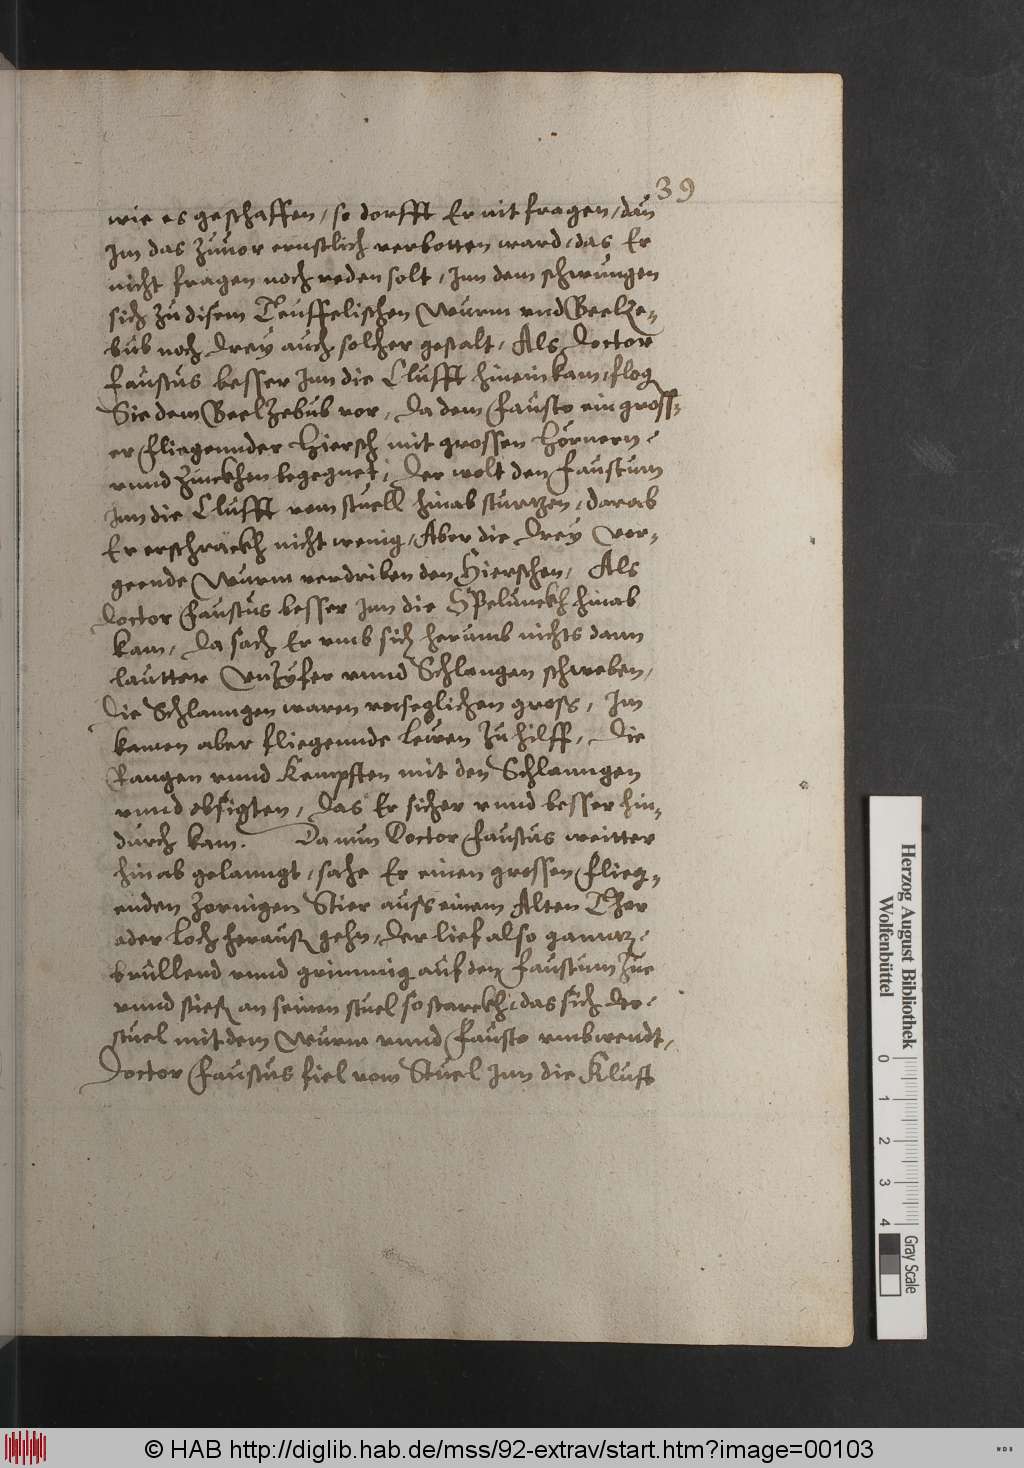 39
wie es geschaffen, so dorfft Er nit fragen, dan
Im das zuuor ernstlich verbotten ward, das Er
nicht fragen noch reden solt, Inn dem schwungen
sich zu disem Teuffelischen Wurm vnd Beelze-
bub noch drey auch solcher gestalt, Als Doctor
Faustus besser Inn die Clufft hinein kam, flog
Sie dem Beelzebub vor, da dem Fausto ein gross-
er fliegennder Hiersch mit grossen Hörnern
vnnd Zinckhen begegnet, Der wolt den Faustum
Inn die Clufft vom stuell hinab sturtzen, darab
Er erschrackh nicht wenig, Aber die drey vor-
geende Wurm verdriben den Hierschen, Als
Doctor Faustus besser Inn die Spelunckh hinab
kam, Da sach Er vmb sich herumb nichts dann
lautter Vnzyfer vnnd Schlangen schweben,
die Schlanngen waren vnseglichen gross, Im
kamen aber fliegennde lewen zu hilff, Die
Rangen vnnd Kempften mit den Schlanngen
vnnd obsigten, das Er sicher vnnd besser hin-
durch kam. Da nun Doctor Faustus weitter
hinab gelanngt, sahe Er einen grossen flieg-
enden zornigen Stier aufs einem Alten Thor
oder loch herauß gehn, Der lief also gantz
brullend vnnd grimmig auf den Faustum zue
vnnd stieß an seinen stuel so starckh, das sich der
stuel mit dem Wurm vnnd Fausto vmbwendt,
Doctor Faustus fiel vom Stuel Inn die Kluft
Herzog August Bibliothek
Wolfenbüttel
0 1 2 3 4
Gray Scale
© HAB http://diglib.hab.de/mss/92-extrav/start.htm?image=00103